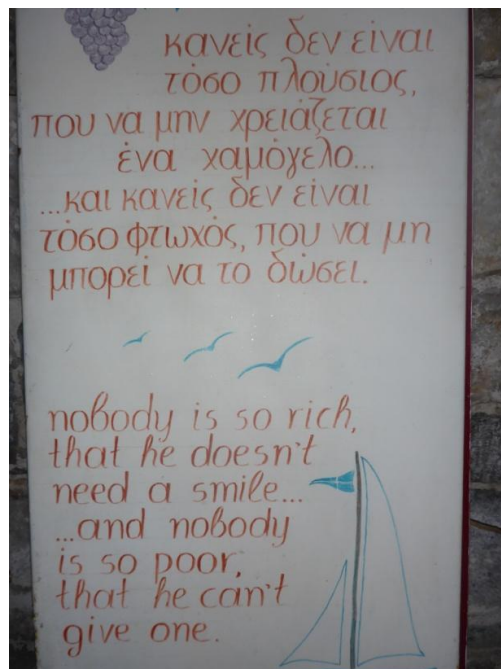 κανείς δεν είναι
τόσο πλούσιος,
που να μην χρειάζεται
ένα χαμόγελο...
...και κανείς δεν είναι
τόσο φτωχός, που να μη
μπορεί να το δώσει.
nobody is so rich,
that he doesn't
need a smile...
...and nobody
is so poor,
that he can't
give one.